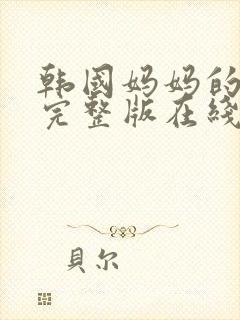 韩国妈妈的
完整版在线
貝尔